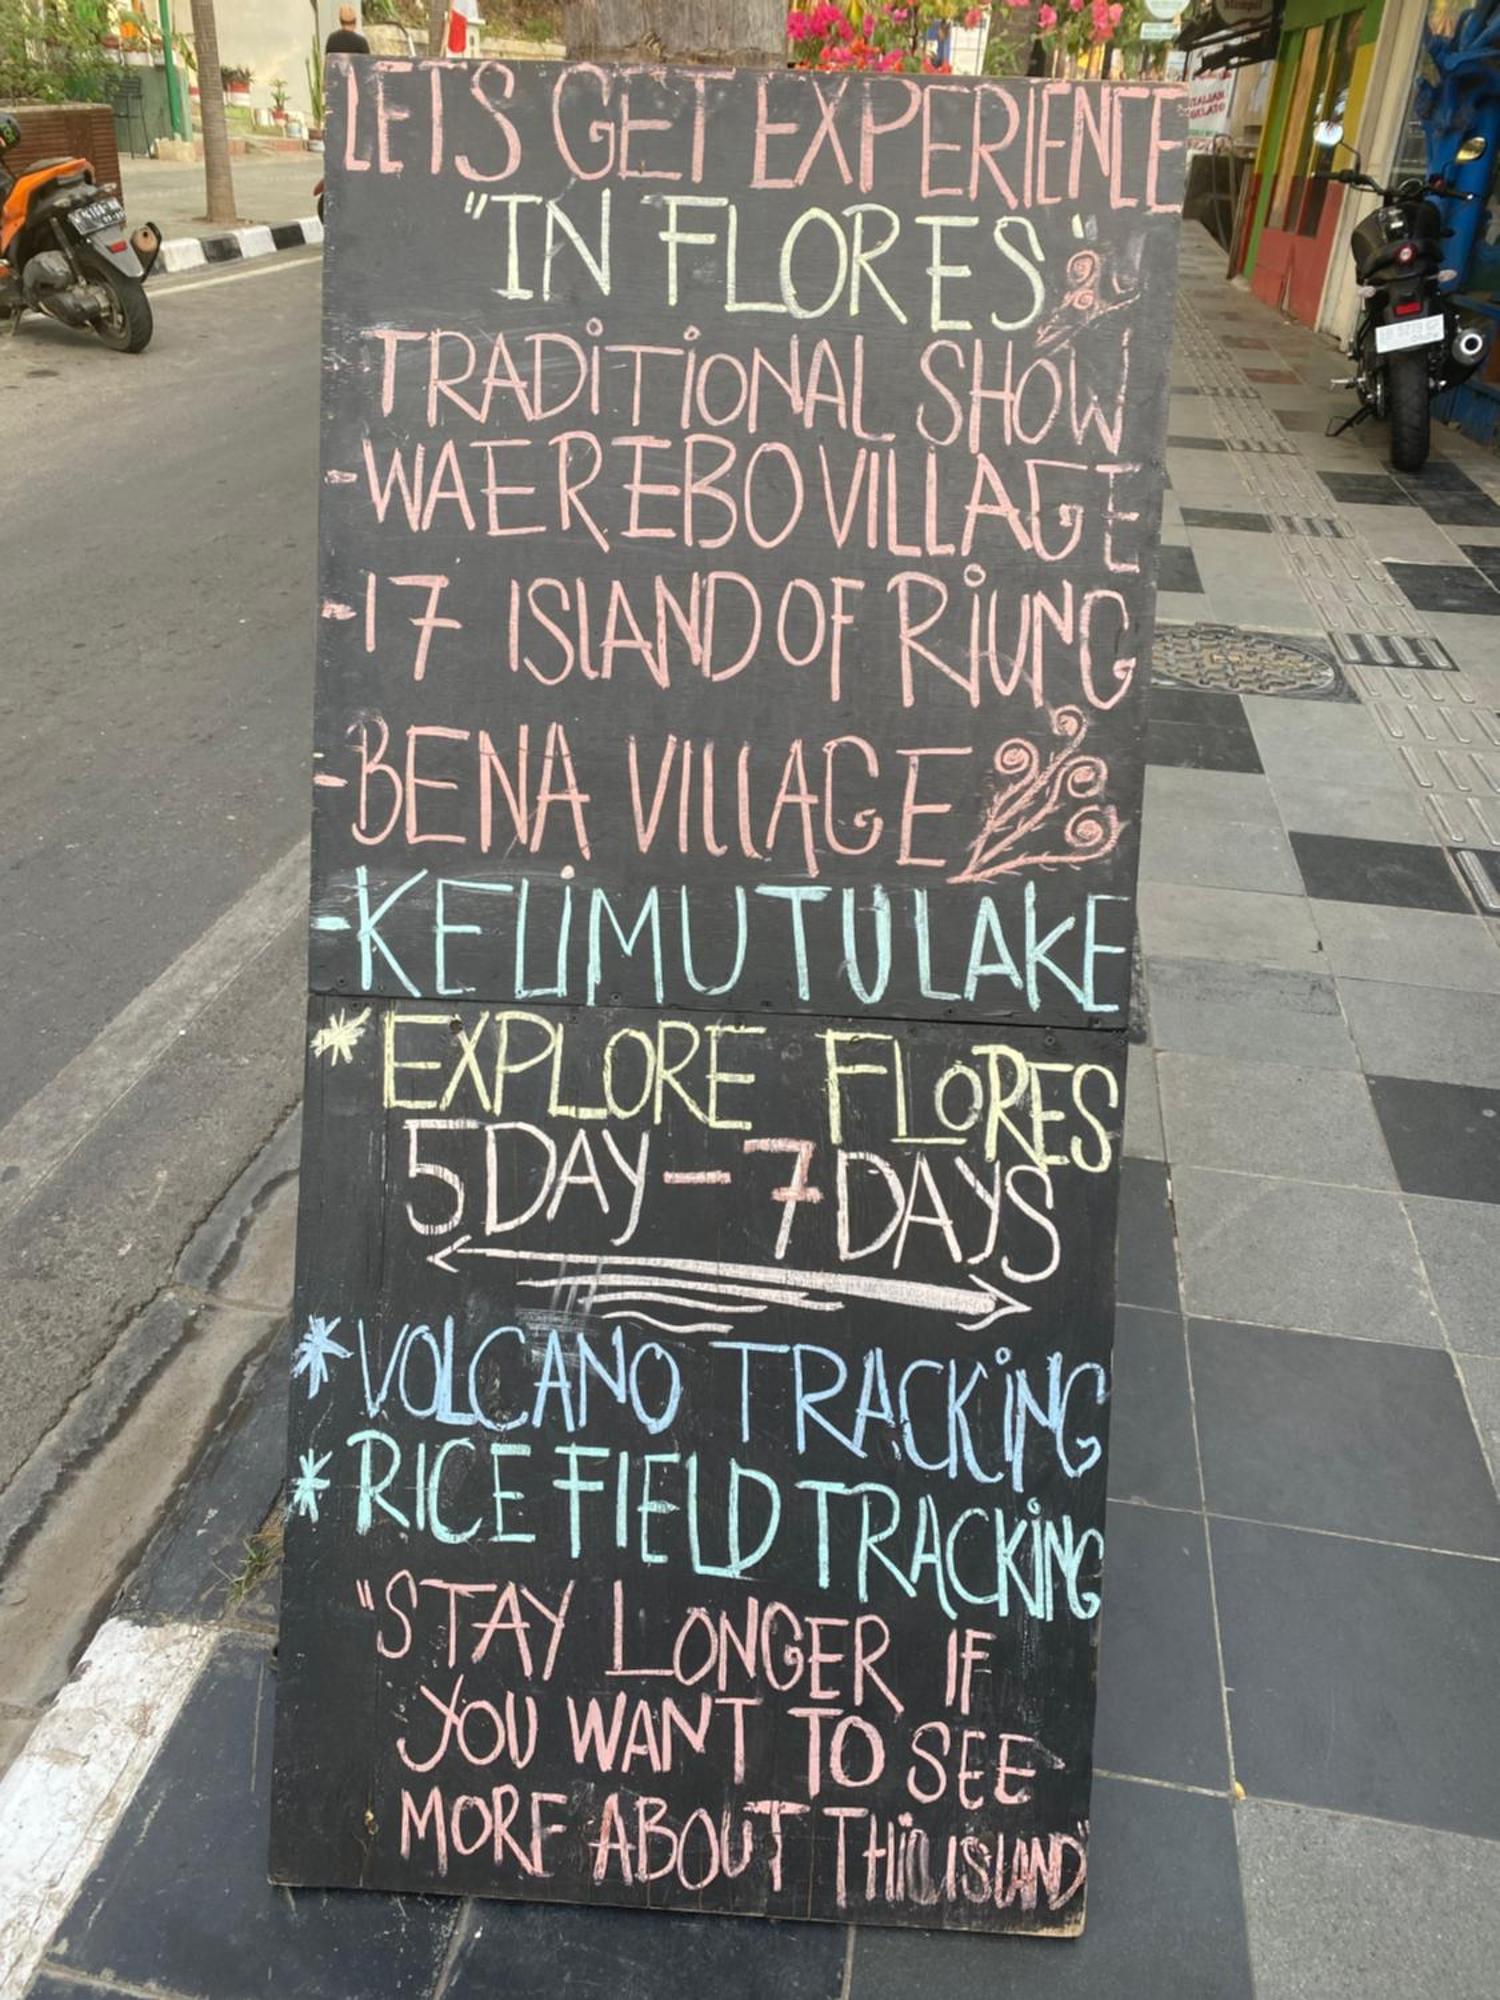 LETS GET EXPERIENCE
"IN FLORES"
TRADITIONAL SHOW
-WAEREBO VILLAGE
-17 ISLAND OF RIUNG
-BENA VILLAGE
-KELIMUTU LAKE
*EXPLORE FLORES
5 DAY - 7 DAYS
*VOLCANO TRACKING
*RICE FIELD TRACKING
"STAY LONGER IF
YOU WANT TO SEE
MORE ABOUT THIS ISLAND"
ITALIAN
GELATO